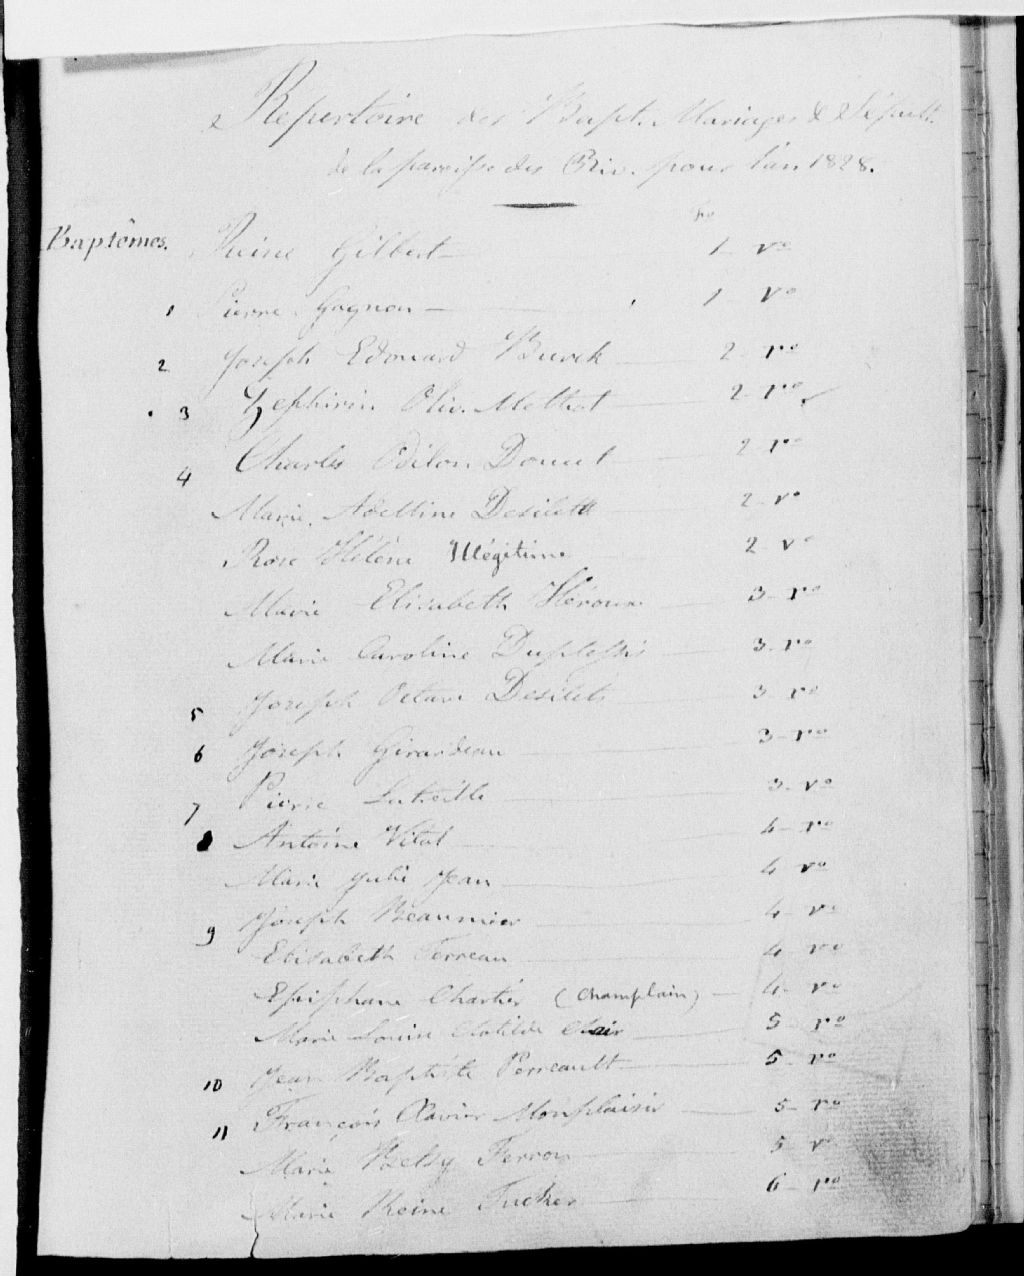 Répertoire des Bapt. Mariages & Sépult.
de la paroisse des Riv. pour l'an 1828.
Fo
Baptêmes. Reine Gilbert — 1 — vo
1 Pierre Gagnon — 1 — vo
2 Joseph Edouard Burck — 2 — ro
3 Zephirin Oliv. Methot — 2 — ro
4 Charles Odilon Doucet — 2 — ro
Marie Adelline Desilets — 2 — vo
Rose Hélène Illégitime — 2 — vo
Marie Elisabeth Héroux — 3 — ro
Marie Caroline Duplessis — 3 — ro
5 Joseph Octave Desilets — 3 — ro
6 Joseph Girardeau — 3 — ro
7 Pierre — 3 — vo
8 Antoine Vital — 4 — ro
Marie Julie Jean — 4 vo
9 Joseph Beaumier — 4 — vo
Elisabeth Terreau — 4 — vo
Epiphane Chartier (Champlain) — 4 — vo
Marie Louise Clotilde Clair — 5 — ro
10 Jean Baptiste Perreault — 5 — ro
11 François Xavier Monplaisir — 5 — ro
Marie Betsy Ferron — 5 v
Marie Reine Tucker — 6 — ro